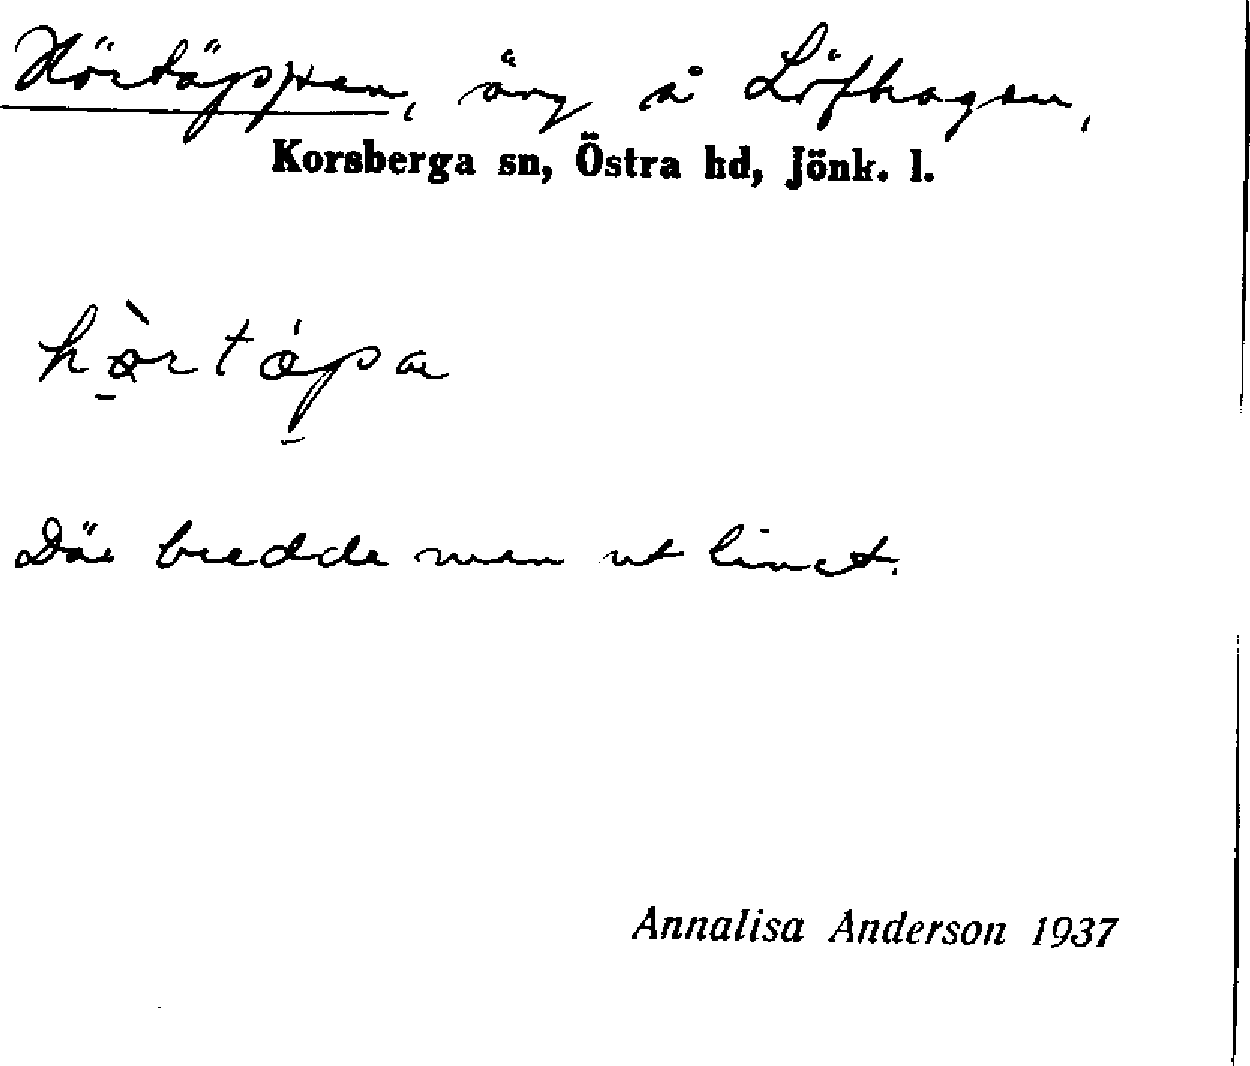 Hörtäppan, äng å Löfhagen,
Korsberga sn, Östra hd, Jönk. l.
hö̀rtápa
Där bredde man ut linet.
Annalisa Anderson 1937